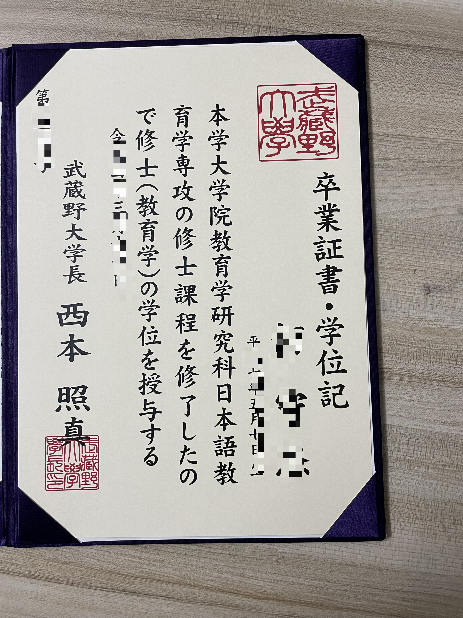 武蔵野
大学
卒業証書・学位記
守
平
年五月七日
本学大学院教育学研究科日本語教
育学専攻の修士課程を修了したの
で修士(教育学)の学位を授与する
令
三
武蔵野大学長 西本 照真
武蔵野
大学
学長印
第